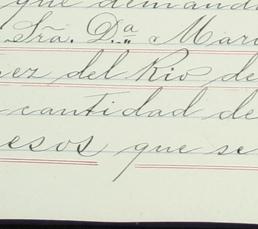 que demand
Sra. D.ª Mar
ez del Rio de
cantidad de
esos que se